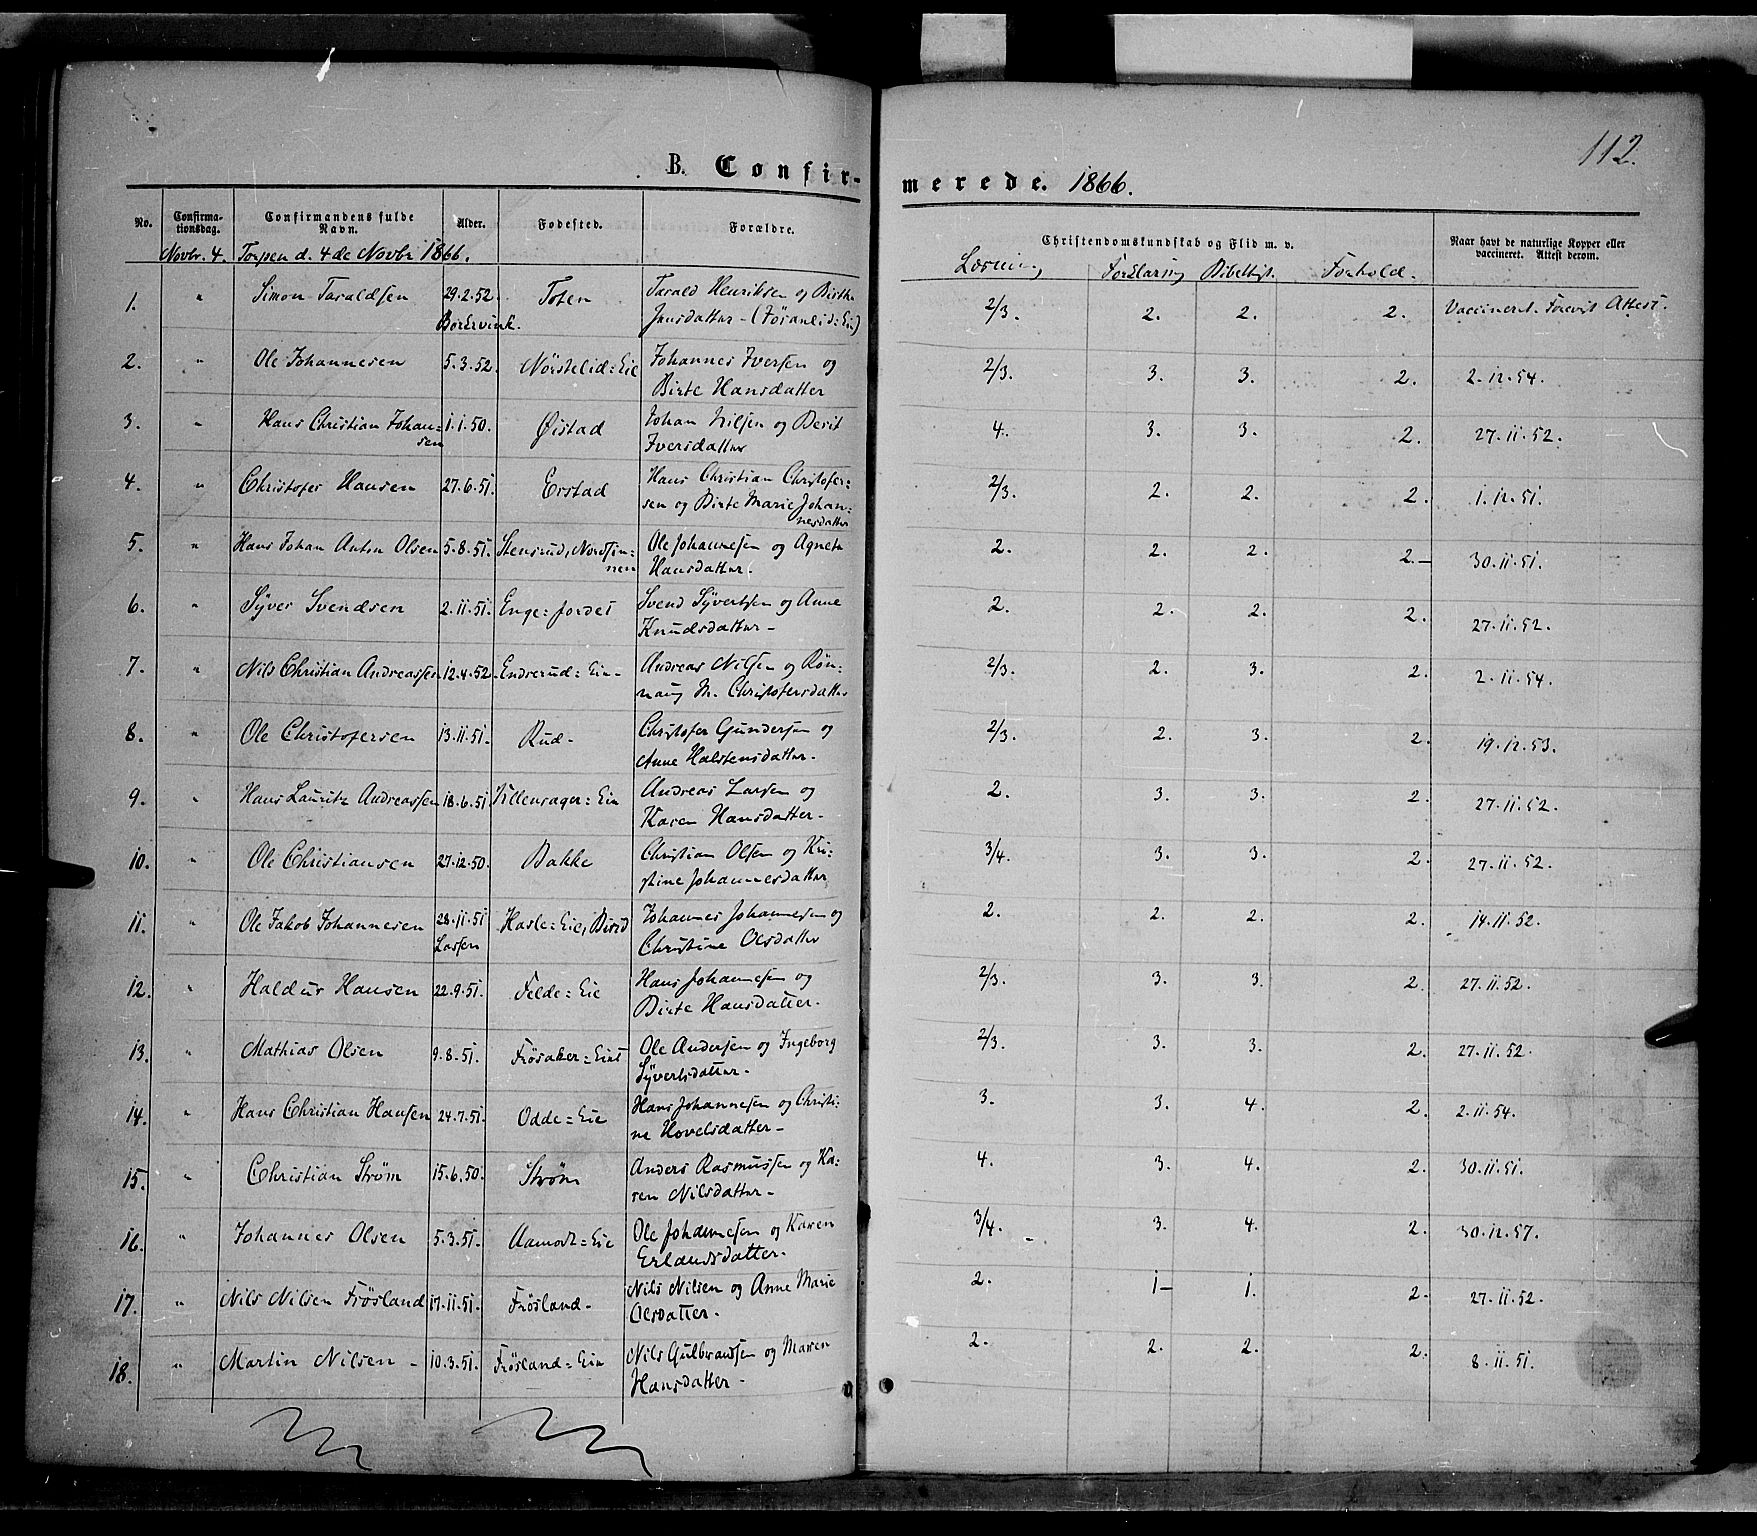 112.
B. Confir-
merede. 1866.
No.
Confirma-
tionsdag.
Confirmandens fulde
Navn.
Alder.
Fødested.
Forældre.
Christendomskundskab og Flid m. v.
Naar havt de naturlige Kopper eller
vaccineret. Attest derom.
Novbr. 4. Torpen d. 4de Novbr 1866.
Læsning Forklaring Bibelhist. Forhold.
1. " Simon Taraldsen 29.2.52. Toten Tarald Henriksen og Birthe 2/3. 2. 2. 2. Vaccineret. Forevist Attest.
Jensdatter -
2. " Ole Johannesen 5.3.52. Nørstelid=Eie Johannes Iversen og 2/3. 3. 3. 2. 2.12.54.
Birte Hansdatter
3. " Hans Christian Johan= 1.1.50. Øistad Johan Nilsen og Berit 4. 3. 3. 2. 27.11.52.
sen Iversdatter
4. " Christofer Hansen 27.6.51. Erstad Hans Christian Christofer= 2/3. 2. 2. 2. 1.12.51.
sen og Birte Marie Johan=
nesdatter
5. " Hans Johan Anton Olsen 5.8.51. Stensrud, Nordsin= Ole Johannesen og Agnete 2. 2. 2. 2.- 30.11.51.
nen Hansdatter.
6. " Syver Svendsen 2.11.51. Enge=jordet Svend Syvertsen og Anne 2. 2. 2. 2. 27.11.52.
Knudsdatter -
7. " Nils Christian Andreassen 12.4.52. Endrerud=Eie- Andreas Nilsen og Røn= 2/3. 2. 3. 2. 2.11.54.
naug M. Christofersdatter
8. " Ole Christofersen 13.11.51. Rud- Christofer Gundersen og 2/3. 2. 3. 2. 19.12.53.
Anne Halstensdatter.
9. " Hans Lauritz Andreassen 18.6.51. Eie Andreas Larsen og 2. 3. 3. 2. 27.11.52.
Karen Hansdatter.
10. " Ole Christiansen 27.12.50. Bakke Christian Olsen og Kri= 3/4. 3. 3. 2. 27.11.52.
stine Johannesdatter
11. " Ole Jakob Johannesen 28.11.51 Hasle=Eie, Birid Johannes Johannesen og 2. 2. 2. 2. 14.11.52.
Christine Olsdatter
12. " Haldur Hansen 22.9.51. Felde=Eie Hans Johannesen og 2/3. 3. 3. 2. 27.11.52.
Birte Hansdatter.
13. " Mathias Olsen 9.8.51. Frøsaker=Eiet Ole Andersen og Ingeborg 2/3. 3. 3. 2. 27.11.52.
Syvertsdatter.
14. " Hans Christian Hansen 24.7.51. Odde=Eie Hans Johannesen og Christi= 3. 3. 4. 2. 2.11.54.
ne Hovelsdatter -
15. " Christian Strøm 15.6.50. Strøm Anders Rasmussen og Ka= 4. 3. 4. 2. 30.11.51.
ren Nilsdatter -
16. " Johannes Olsen 5.3.51. Aamodt=Eie Ole Johannesen og Karen 3/4. 3. 4. 2. 30.12.57.
Erlandsdatter.
17. " Nils Nilsen Frøsland 17.11.51. Frøsland- Nils Nilsen og Anne Marie 2. 1- 1. 2. 27.11.52.
Olsdatter.
18. " Martin Nilsen - 10.3.51. Frøsland=Eie Nils Gulbrandsen og Maren 2. 2. 2. 2. 8.11.51.
Hansdatter -